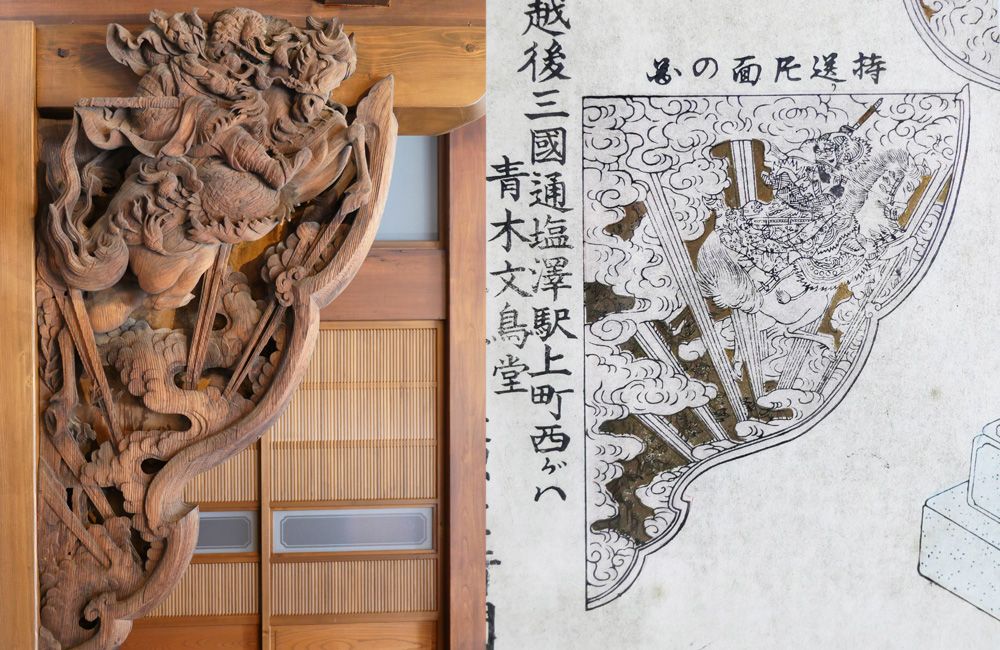 持送片面の圖
越後三國通塩澤駅上町西がハ
青木文鳥堂